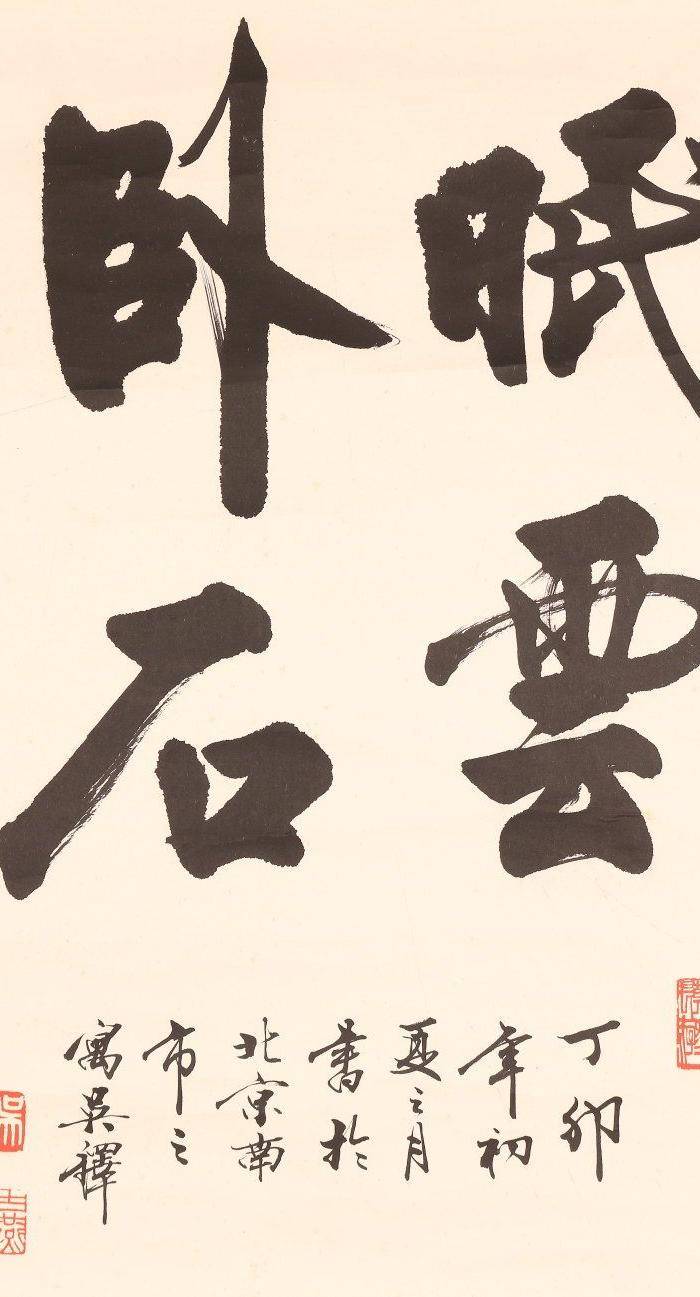 眠雲
卧石
丁卯
年初
夏之月
書於
北京南
市之
寓吳釋